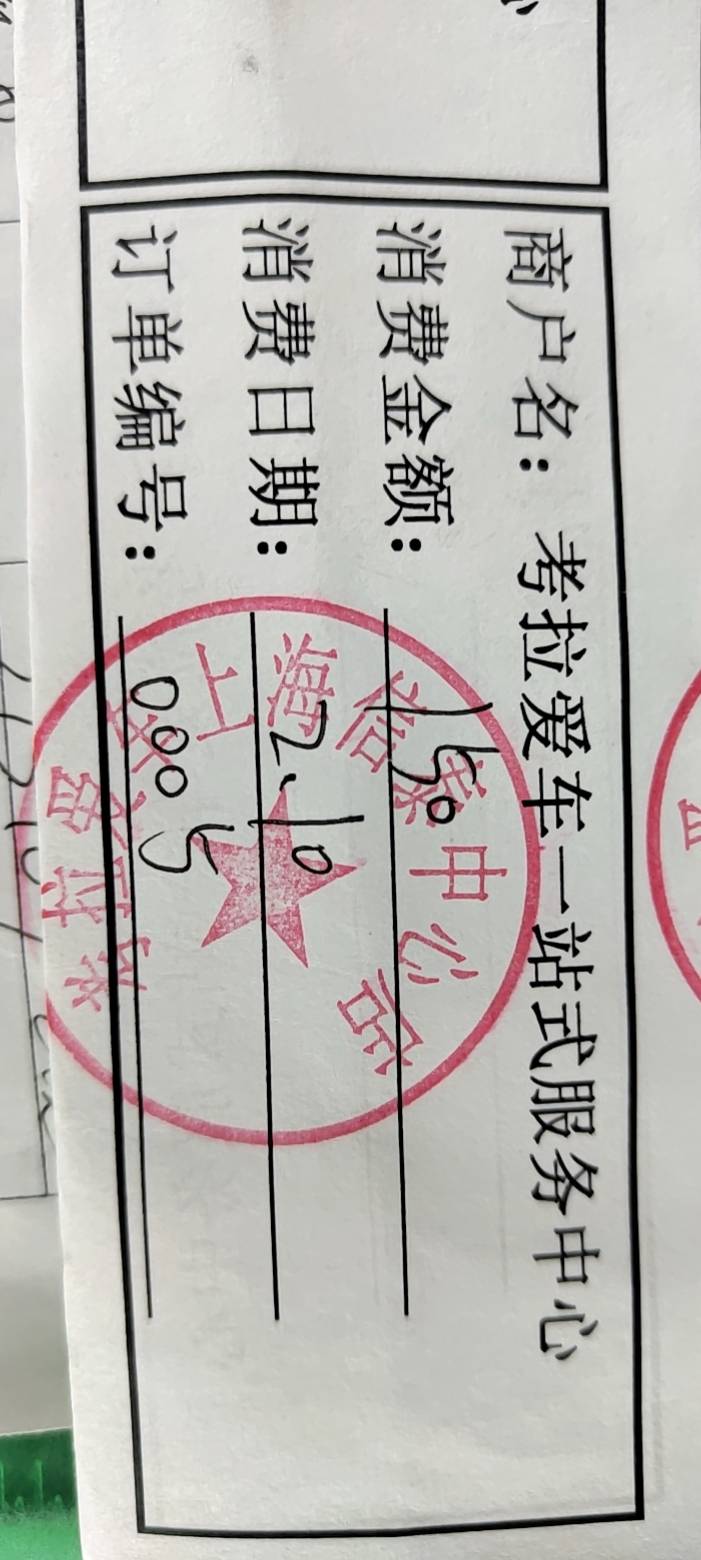 商户名：考拉爱车一站式服务中心
消费金额：150
消费日期：2、10
订单编号：0005